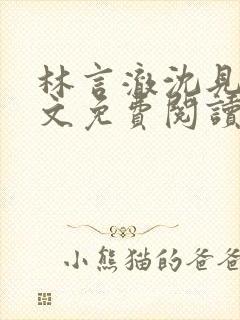 林言澈沈見
文免費閱讀
小熊猫的爸爸